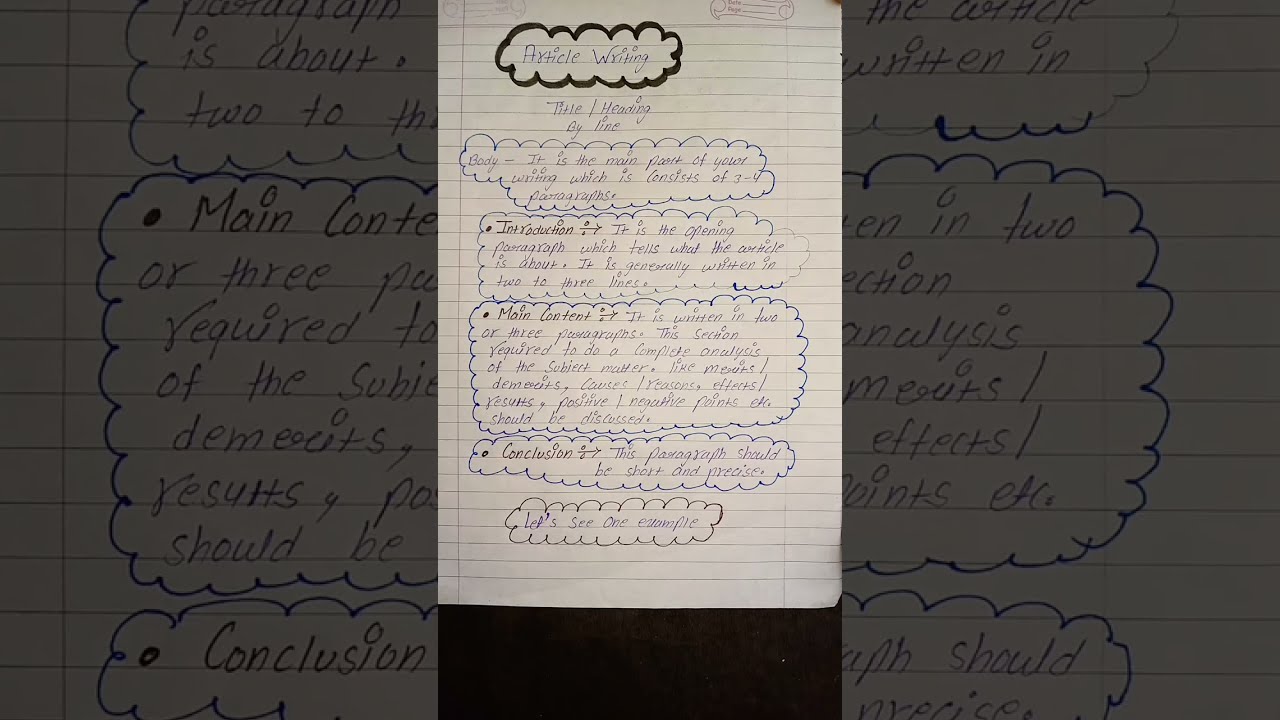 Date
Page
Article Writing
Title / Heading
By line
Body - It is the main part of your
writing which is consists of 3-4
paragraphs.
• Introduction :→ It is the opening
paragraph which tells what the article
is about. It is generally written in
two to three lines.
• Main Content :→ It is written in two
or three paragraphs. This Section
required to do a complete analysis
of the Subject matter. like merits /
demerits, causes / reasons, effects /
results, positive / negative points etc.
should be discussed.
• Conclusion :→ This paragraph should
be short and precise.
Let's see one example